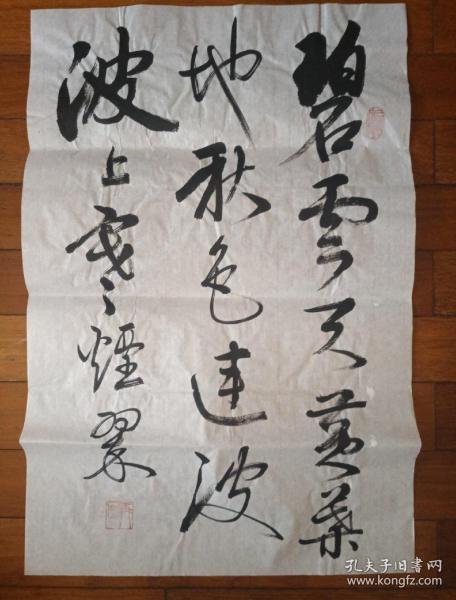 碧雲天黄葉
地秋色連波
波上寒煙翠
孔夫子旧書网
www.kongfz.com